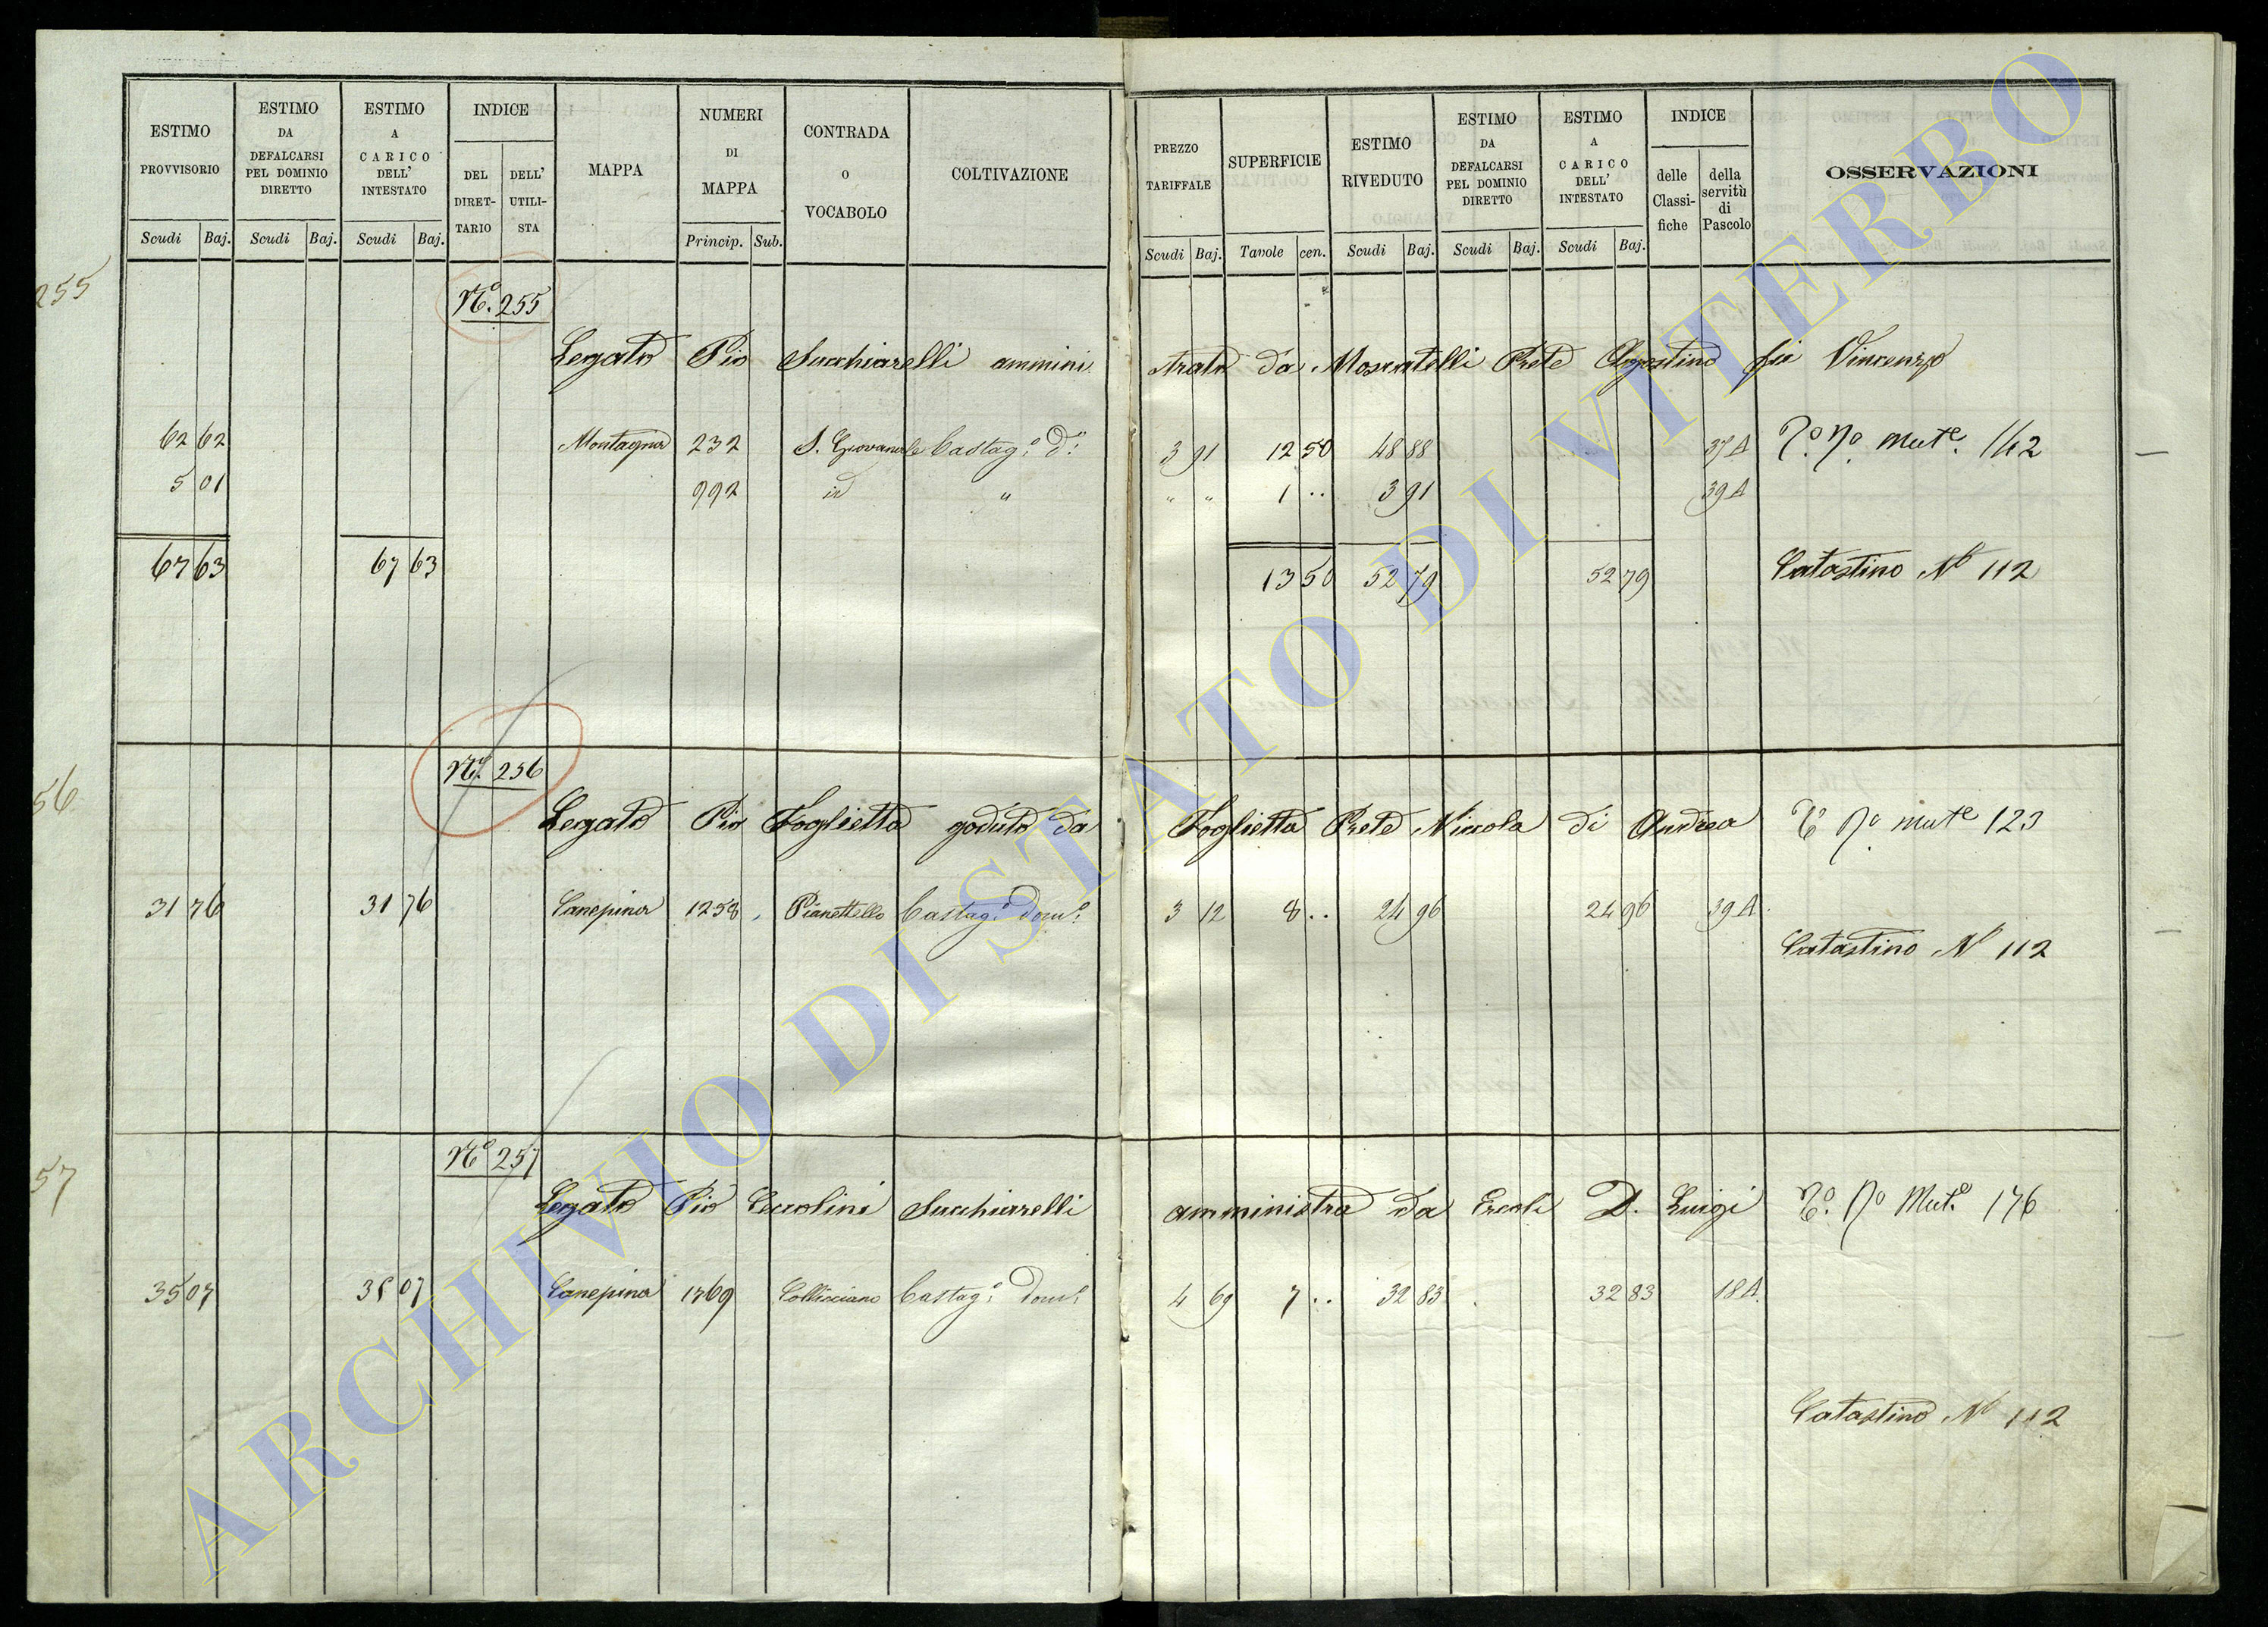 ESTIMO PROVVISORIO
ESTIMO DA DEFALCARSI PEL DOMINIO DIRETTO
ESTIMO A CARICO DELL' INTESTATO
INDICE
DEL DIRET-TARIO
DELL' UTILI-STA
MAPPA
NUMERI DI MAPPA
CONTRADA O VOCABOLO
COLTIVAZIONE
PREZZO TARIFFALE
SUPERFICIE
ESTIMO RIVEDUTO
ESTIMO DA DEFALCARSI PEL DOMINIO DIRETTO
ESTIMO A CARICO DELL' INTESTATO
INDICE
delle Classi-fiche
della servitù di Pascolo
OSSERVAZIONI
Scudi Baj. Scudi Baj. Scudi Baj. Princip. Sub. Scudi Baj. Tavole cen. Scudi Baj. Scudi Baj. Scudi Baj.
255
N.º 255
Legato Pio Succhiarelli ammini strato da Moscatelli Prete Agostino fu Vincenzo
62 62 Montagna 232 S. Giovanale Castag.º d.º 3 91 12 50 48 88 37 A mut.e 142
5 01 992 id " " " 1 .. 3 91 39 A
67 63 67 63 13 50 52 79 52 79 Catastino Nº 112
56
Nº. 256
Legato Pio Foglietta goduto da Foglietta Prete Niccola di Andrea mut.e 123
31 76 31 76 Canepina 1258 Pianettello Castag.º dom.º 3 12 8 .. 24 96 24 96 39 A
Catastino Nº 112
57
Nº 257
Legato Pio Ceccolini Succhiarelli amministra da Ercoli D. Luigi Mut.e 176
35 07 35 07 Canepina 1769 Collicciano Castag.º dom.º 4 69 7 .. 32 83 32 83 18 A
Catastino Nº 112
ARCHIVIO DI STATO DI VITERBO